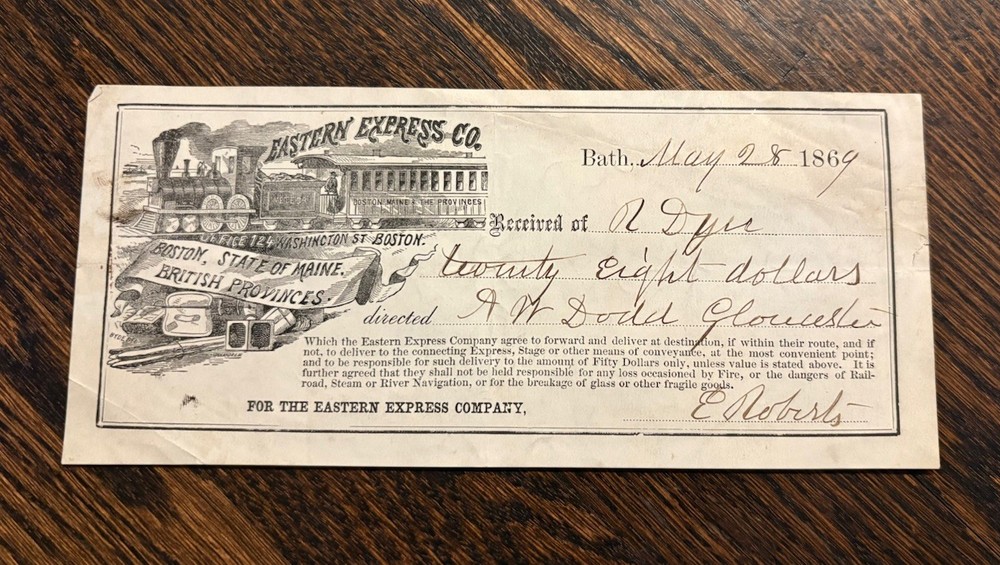 EASTERN EXPRESS CO.
BOSTON MAINE & THE PROVINCES
OFFICE 124 WASHINGTON ST BOSTON.
BOSTON, STATE OF MAINE.
BRITISH PROVINCES.
Bath, May 28 1869
Received of R Dyer
twenty eight dollars
directed A W Dodd Gloucester
Which the Eastern Express Company agree to forward and deliver at destination, if within their route, and if
not, to deliver to the connecting Express, Stage or other means of conveyance, at the most convenient point;
and to be responsible for such delivery to the amount of Fifty Dollars only, unless value is stated above. It is
further agreed that they shall not be held responsible for any loss occasioned by Fire, or the dangers of Rail-
road, Steam or River Navigation, or for the breakage of glass or other fragile goods.
FOR THE EASTERN EXPRESS COMPANY, E Roberts